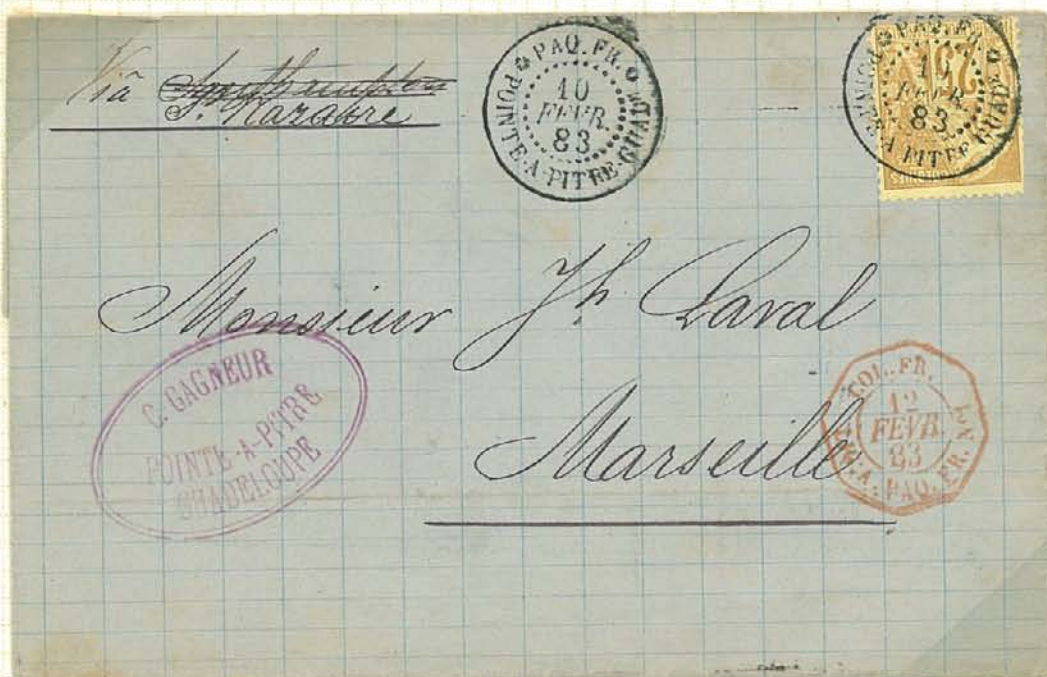 Viâ Southampton
St. Nazaire
POINTE-A-PITRE-GUADE PAQ. FR.
10
FEVR
83
POINTE-A-PITRE GUADE PAQ. FR.
10
FEVR
83
25
Monsieur Jh Laval
Marseille
C. GAGNEUR
POINTE-A-PITRE
GUADELOUPE
COL. FR.
12
FEVR
83
PAQ. FR.